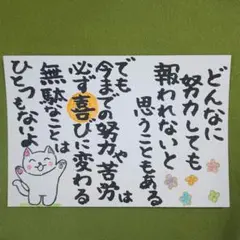 どんなに
努力しても
報われないと
思うこともある
でも
今までの努力や苦労は
必ず喜びに変わる
無駄なことは
ひとつもないよ